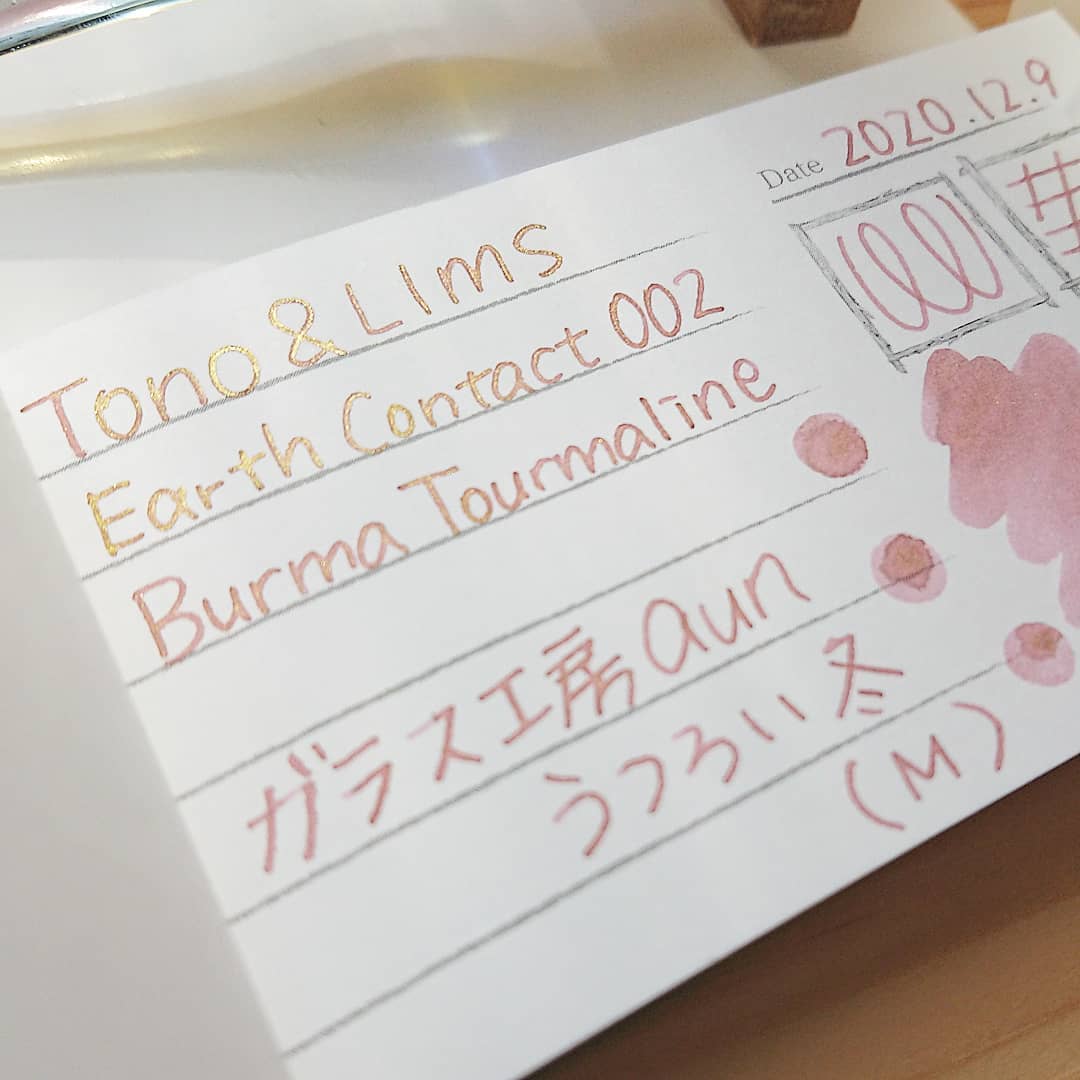 Date 2020.12.9
Tono & Lims
Earth Contact 002
Burma Tourmaline
ガラス工房 aun
うつろい冬
(M)